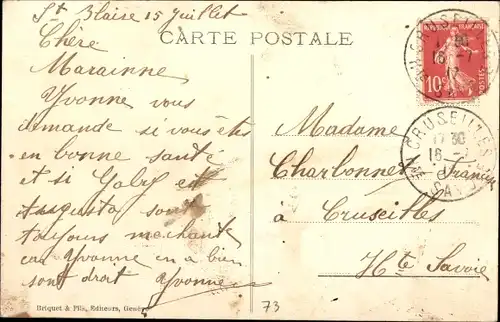 St Blaise 15 Juillet
CARTE POSTALE
Chère
Marainne
Yvonne vous
demande si vous êtes
en bonne santé
et si Gabry et
Augusta sont
toujours mechante
car Yvonne en a bien
sont droit Yvonne
Briquet & Fils, Editeurs, Genève
Madame
Charbonnet Francis
à Cruseilles
Hte Savoie
73
10c
POSTES
CRUSEILLES
16 -7
17
CRUSEILLES
17 30
16